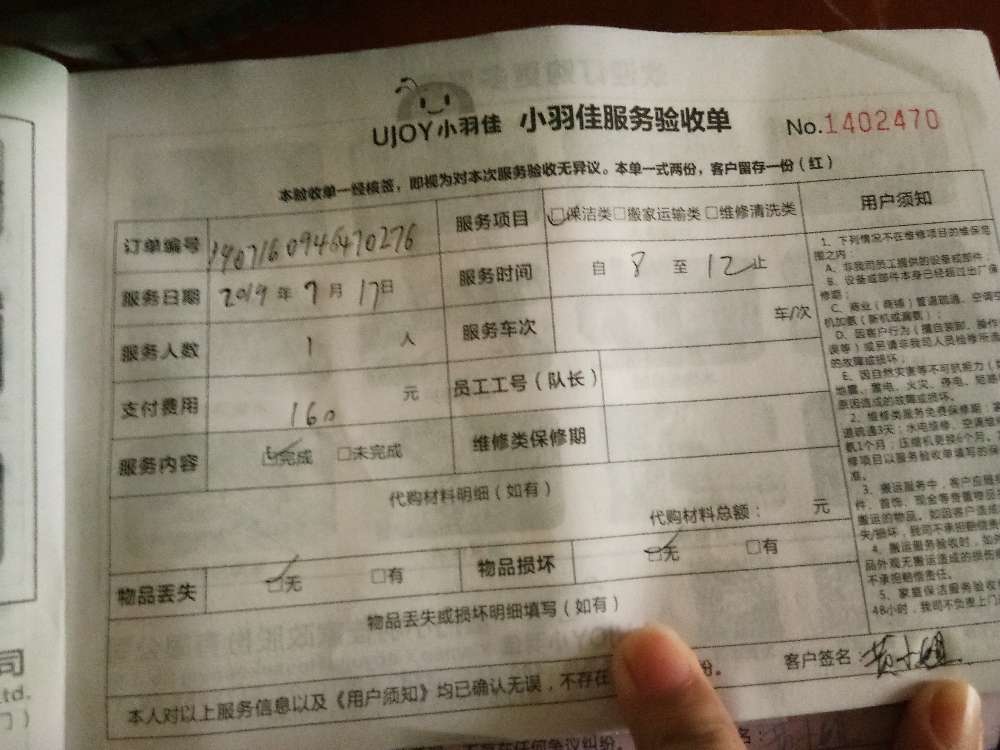 UJOY小羽佳 小羽佳服务验收单 No.1402470
本验收单一经核签，即视为对本次服务验收无异议。本单一式两份，客户留存一份（红）
订单编号 1407160946470276 服务项目 □保洁类□搬家运输类□维修清洗类
服务日期 2019年7月17日 服务时间 自 8 至 12 止
服务人数 1 人 服务车次 车/次
支付费用 160 元 员工工号（队长）
服务内容 □完成 □未完成 维修类保修期
代购材料明细（如有）
代购材料总额： 元
物品丢失 □无 □有 物品损坏 □无 □有
物品丢失或损坏明细填写（如有）
客户签名：黄小姐
本人对以上服务信息以及《用户须知》均已确认无误，不存在 纷。
用户须知
1、下列情况不在维修项目的维保范
围之内：
A、非我司员工提供的设备或部件；
B、设备或部件本身已经超过出厂保
修期；
C、商业（商铺）管道疏通、空调空
机加氨（新机或漏氨）；
D、因客户行为（擅自装卸、操作
误等）或另请非我司人员检修所造
的故障或损坏；
E、因自然灾害等不可抗拒力（如
地震、雷电、火灾、停电、短路
原因造成的故障或损坏。
2、维修类服务免费保修期：
道疏通3天；水电维修、空调维修
氨1个月；压缩机更换6个月。
修项目以服务验收单填写的保
准。
3、搬运服务中，客户应随
件、首饰、现金等贵重物品
搬运的物品。如因客户造成
失/损坏，我司不承担赔偿责
4、搬运服务验收时，如外
品外观无搬运造成的损伤
不承担赔偿责任。
5、家庭保洁服务验收
48小时，我司不负责上门
司
td.
门）
不存在任何争议纠纷。
名：